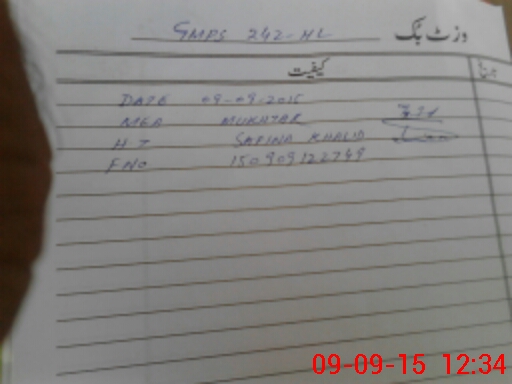 GMPS 242-HL وزٹ بُک
کیفیت
DATE 09-09-2015
MEA MUKHTAR
H.T SAFINA KHALID
F NO 150909122749
09-09-15 12:34